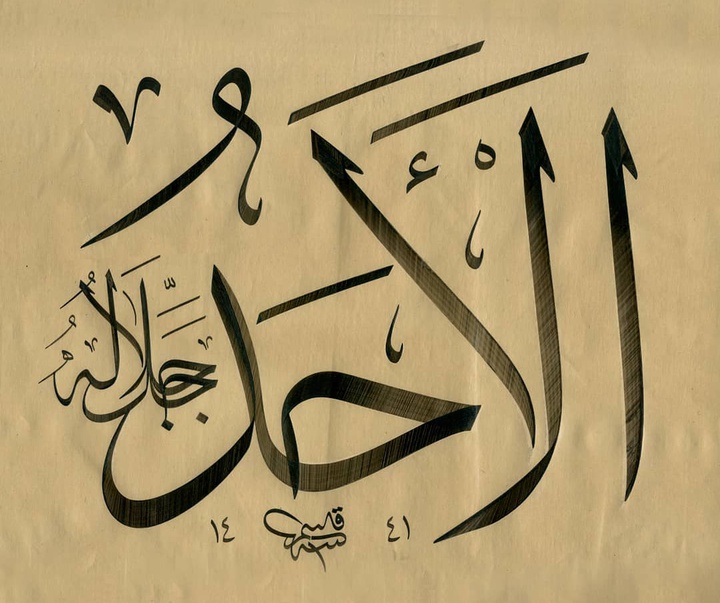 الْأَحَدُ
جَلَّ جَلَالُهُ
١٤ ٤١